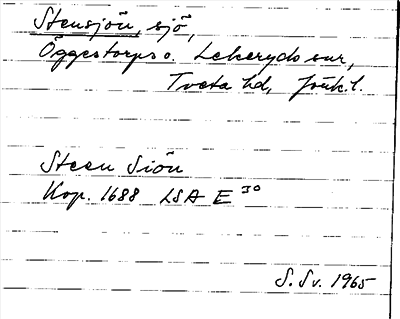 Stensjön, sjö,
Öggestorps o. Lekeryds snr,
Tveta hd, Jönk. l.
Steen Siön
Kop. 1688 LSA E 30
S. Sv. 1965